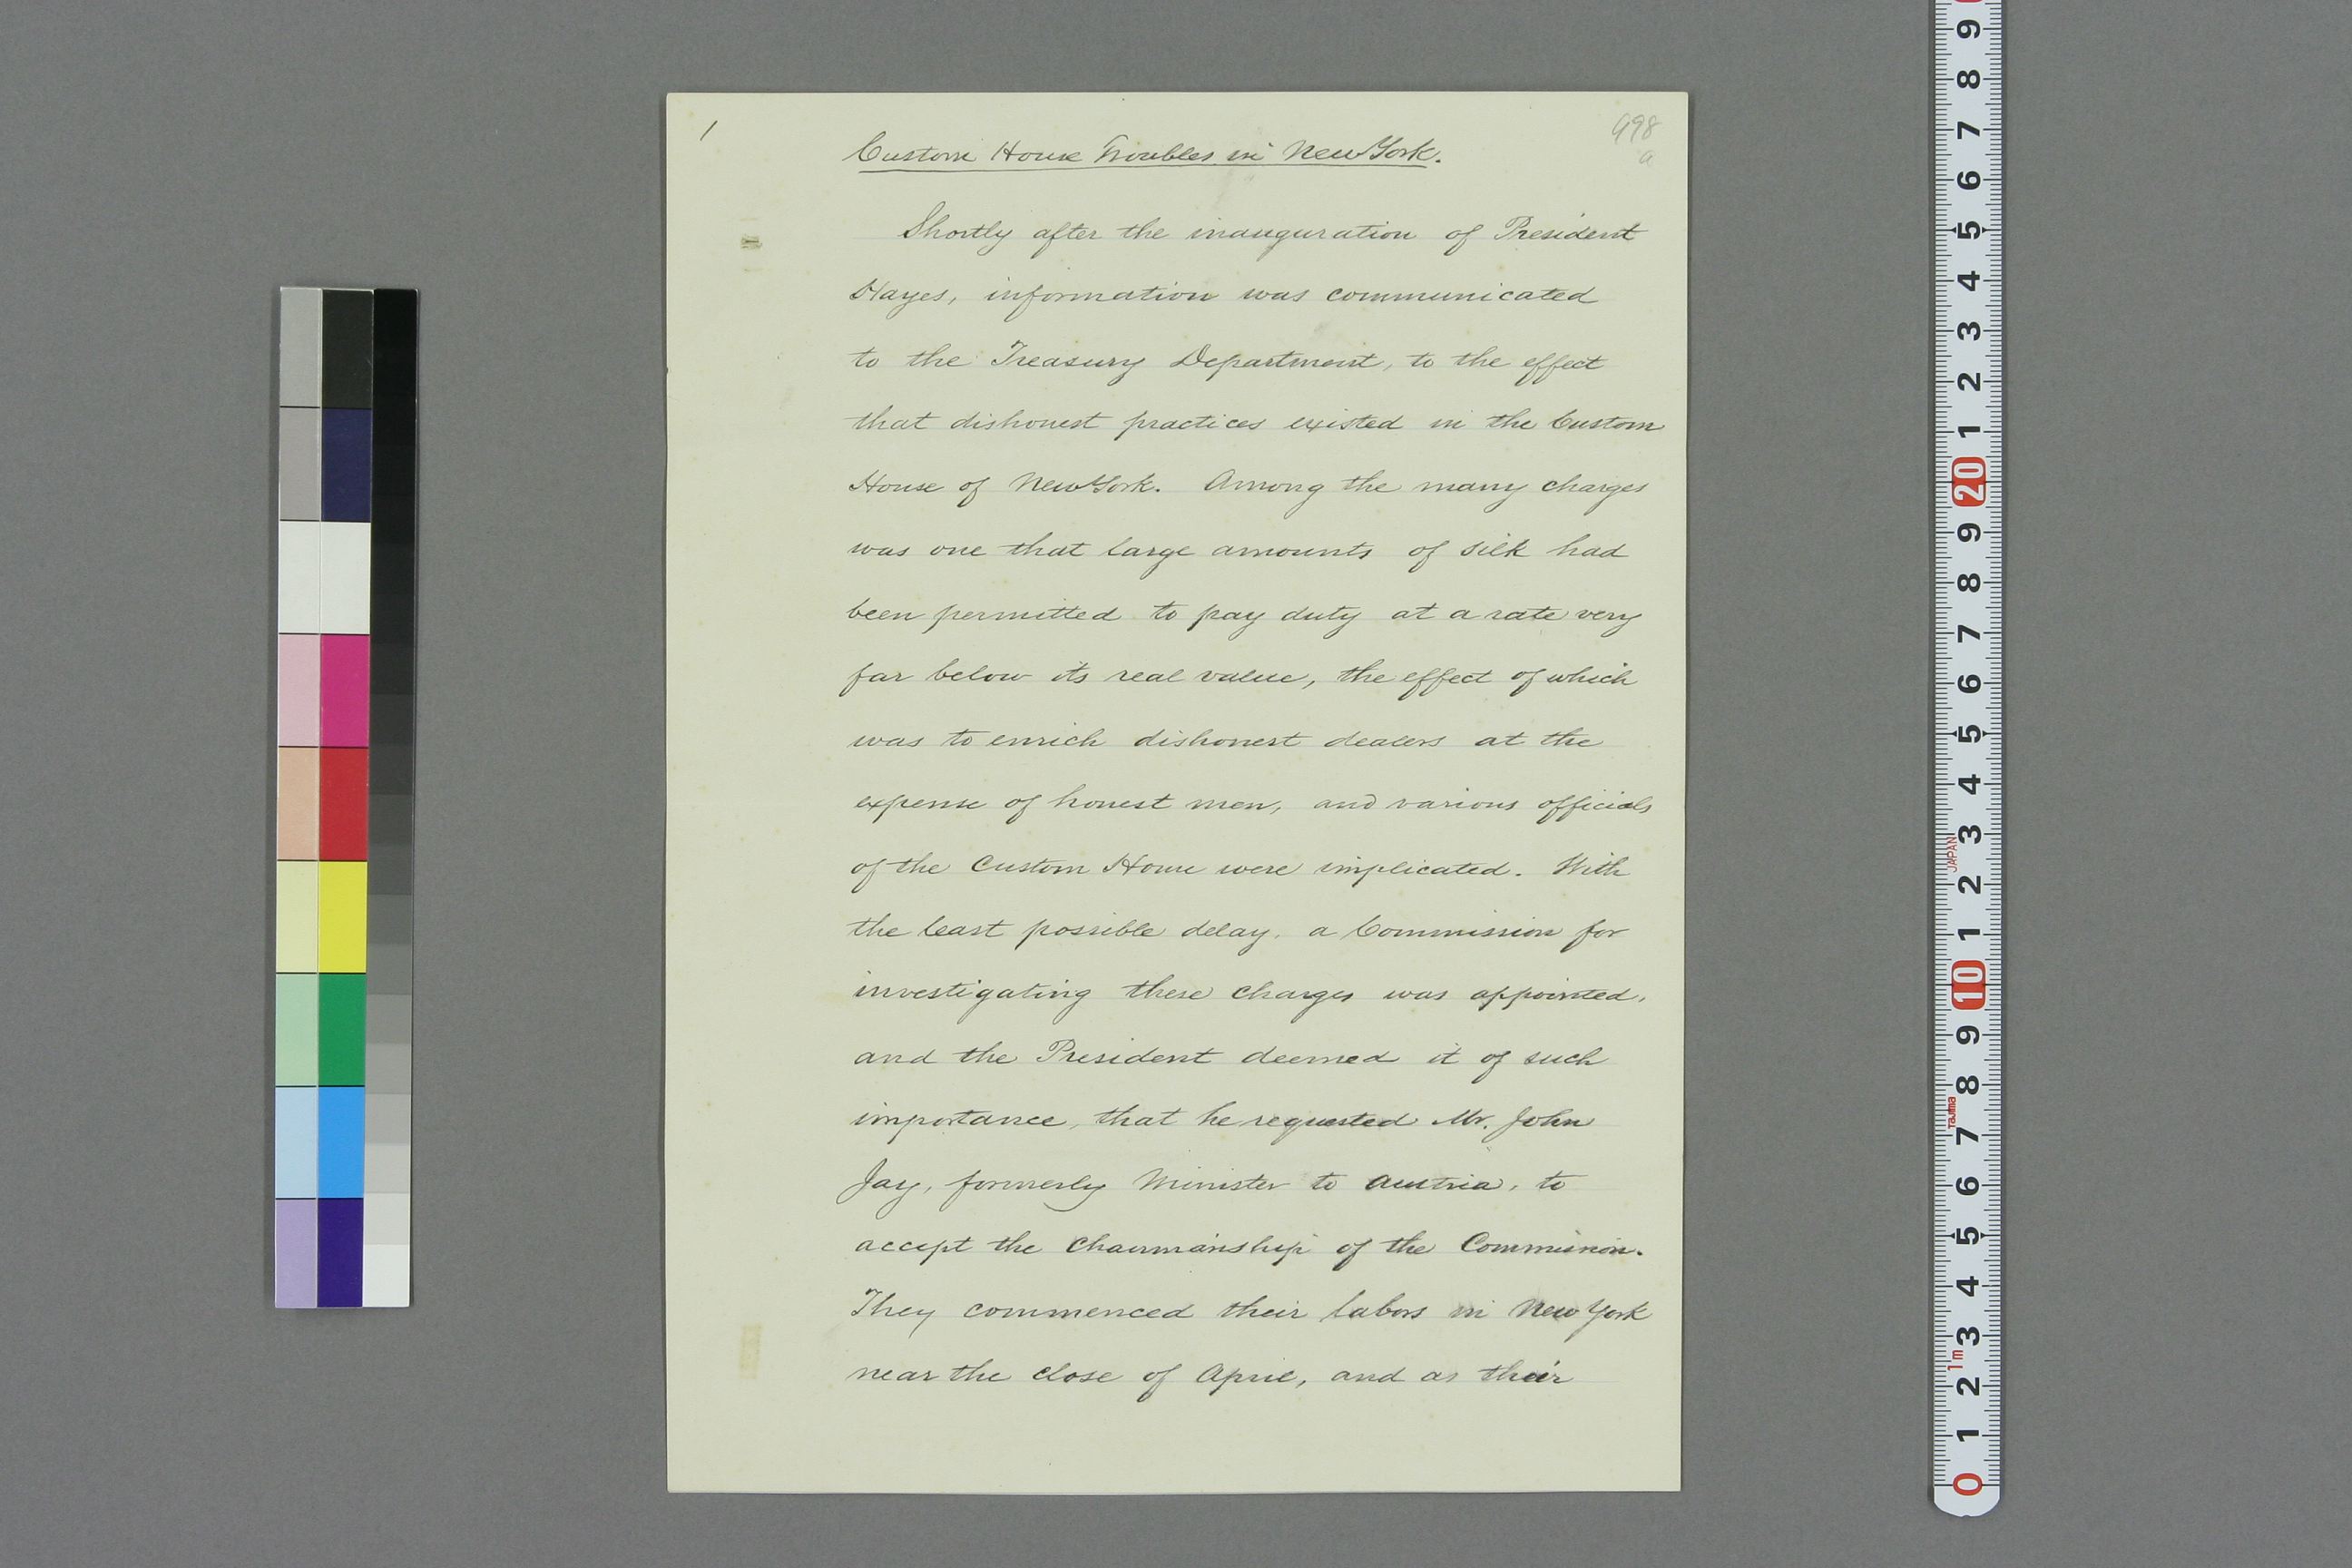 1
998
a
Custom House Troubles in New York.
Shortly after the inauguration of President
Hayes, information was communicated
to the Treasury Department, to the effect
that dishonest practices existed in the Custom
House of New York. Among the many charges
was one that large amounts of silk had
been permitted to pay duty at a rate very
far below its real value, the effect of which
was to enrich dishonest dealers at the
expense of honest men, and various officials
of the Custom House were implicated. With
the least possible delay, a Commission for
investigating these charges was appointed,
and the President deemed it of such
importance, that he requested Mr. John
Jay, formerly Minister to Austria, to
accept the chairmanship of the Commission.
They commenced their labors in New York
near the close of April, and as their
9
8
7
6
5
4
3
2
1
20
9
8
7
6
5
4
3
JAPAN
2
1
10
9
8
Tajima
7
6
5
4
3
1m
2
1
0